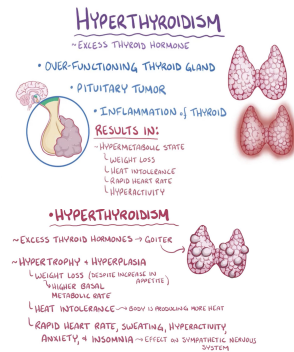 HYPERTHYROIDISM
~EXCESS THYROID HORMONE
• OVER-FUNCTIONING THYROID GLAND
• PITUITARY TUMOR
• INFLAMMATION of THYROID
RESULTS IN:
~HYPERMETABOLIC STATE
└ WEIGHT LOSS
└ HEAT INTOLERANCE
└ RAPID HEART RATE
└ HYPERACTIVITY
• HYPERTHYROIDISM
~EXCESS THYROID HORMONES → GOITER
~HYPERTROPHY + HYPERPLASIA
└ WEIGHT LOSS (DESPITE INCREASE IN APPETITE)
└ HIGHER BASAL
METABOLIC RATE
└ HEAT INTOLERANCE → BODY IS PRODUCING MORE HEAT
└ RAPID HEART RATE, SWEATING, HYPERACTIVITY,
ANXIETY, & INSOMNIA → EFFECT ON SYMPATHETIC NERVOUS
SYSTEM